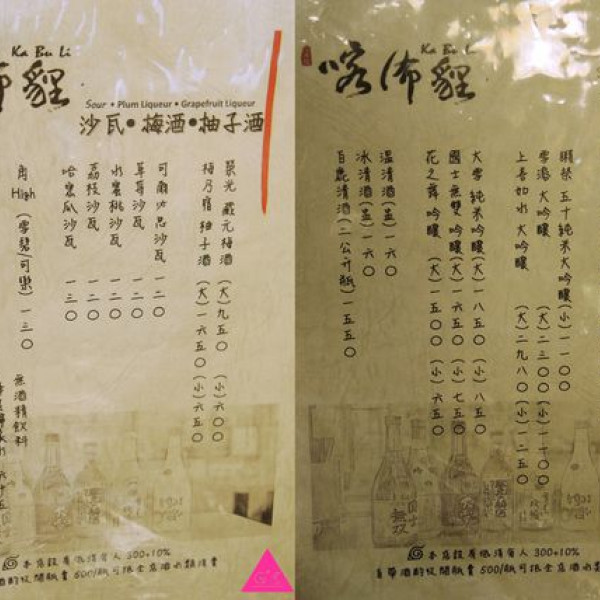 Ka Bu Li
貍
Sour • Plum Liqueur • Grapefruit Liqueur
沙瓦•梅酒•柚子酒
榮光 藏元梅酒 (大)九五〇 (小)六〇〇
梅乃宿 柚子酒 (大)一六五〇 (小)六五〇
可爾必思沙瓦 一二〇
草莓沙瓦 一二〇
水蜜桃沙瓦 一二〇
荔枝沙瓦 一二〇
哈密瓜沙瓦 一三〇
角 High (雪碧/可樂) 一三〇
無酒精飲料
本店設有低消每人 300+10%
500/瓶可抵全店酒水類消費
Ka Bu Li
喀佈貍
獺祭 五十純米大吟釀 (小)一一〇〇
雪鴻 大吟釀 (大)二三〇〇 (小)一一〇〇
上善如水 大吟釀 (大)二九八〇 (小)一二五〇
大雪 純米吟釀 (大)一八五〇 (小)八五〇
國士無雙 吟釀 (大)一六五〇 (小)七五〇
花之舞 吟釀 (大)一五〇〇 (小)六五〇
溫清酒(壺)一六〇
冰清酒(壺)一六〇
白鹿清酒(二公升瓶)一五五〇
本店設有低消每人 300+10%
自帶酒酌收開瓶費 500/瓶可抵全店酒水類